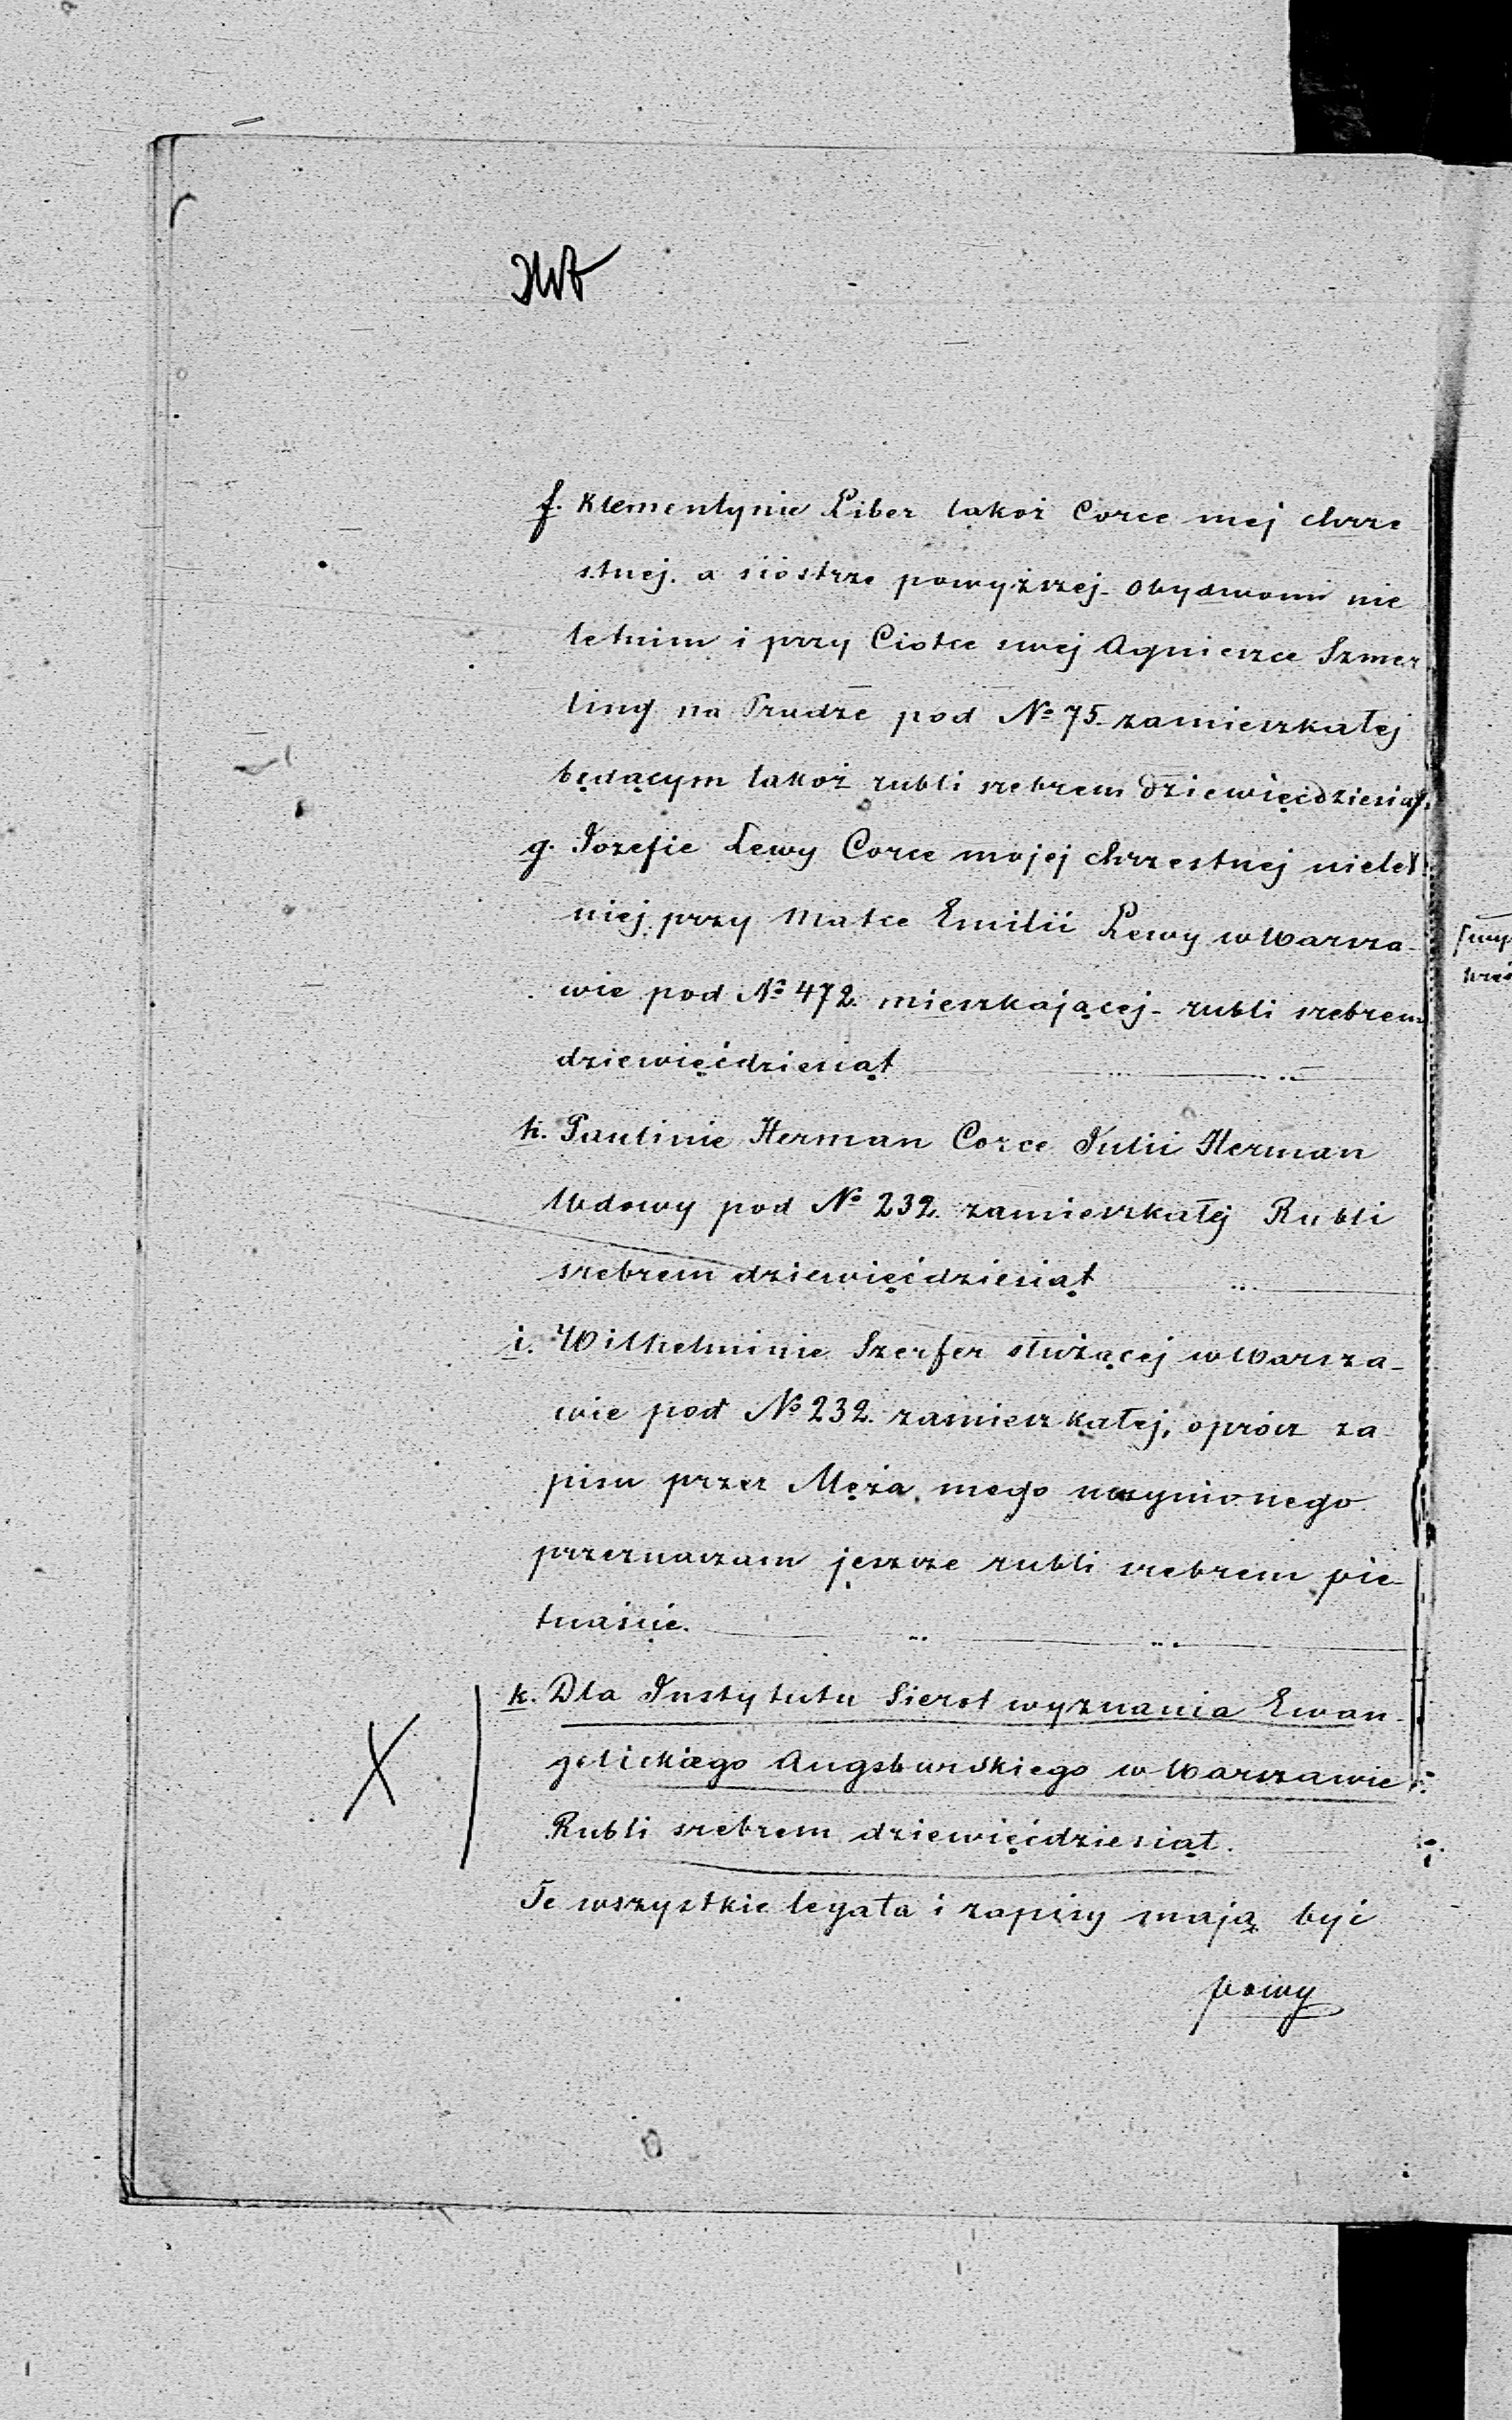 f. Klementynie Liber takoż Corce mej chrze
stnej. a siostrze powyższej- obydwom nie
letnim i przy Ciotce swej Agniesce Szmer
ling na Pradze pod № 75. zamieszkałej
będącym takoż rubli srebrem dziewięćdziesiąt.
g. Jozefie Lewy Corce mojej chrzestnej nielet
niej przy Matce Emilii Lewy w Warsza-
wie pod № 472. mieszkającej- rubli srebrem
dziewięćdziesiąt
h. Paulinie Herman Corce Julii Herman
Wdowy pod № 232. zamieszkałej Rubli
srebrem dziewięćdziesiąt
i. Wilhelminie Szerfer służącej w Warsza-
wie pod № 232. zamieszkałej, oprócz za
pisu przez Męża mego uczynionego
przeznaczam jeszcze rubli srebrem pie-
tnaście.
k. Dla Instytutu Sierot wyznania Ewan-
gelickiego Augsburskiego w Warszawie
Rubli srebrem dziewięćdziesiąt.
Te wszystkie legata i zapisy mają być